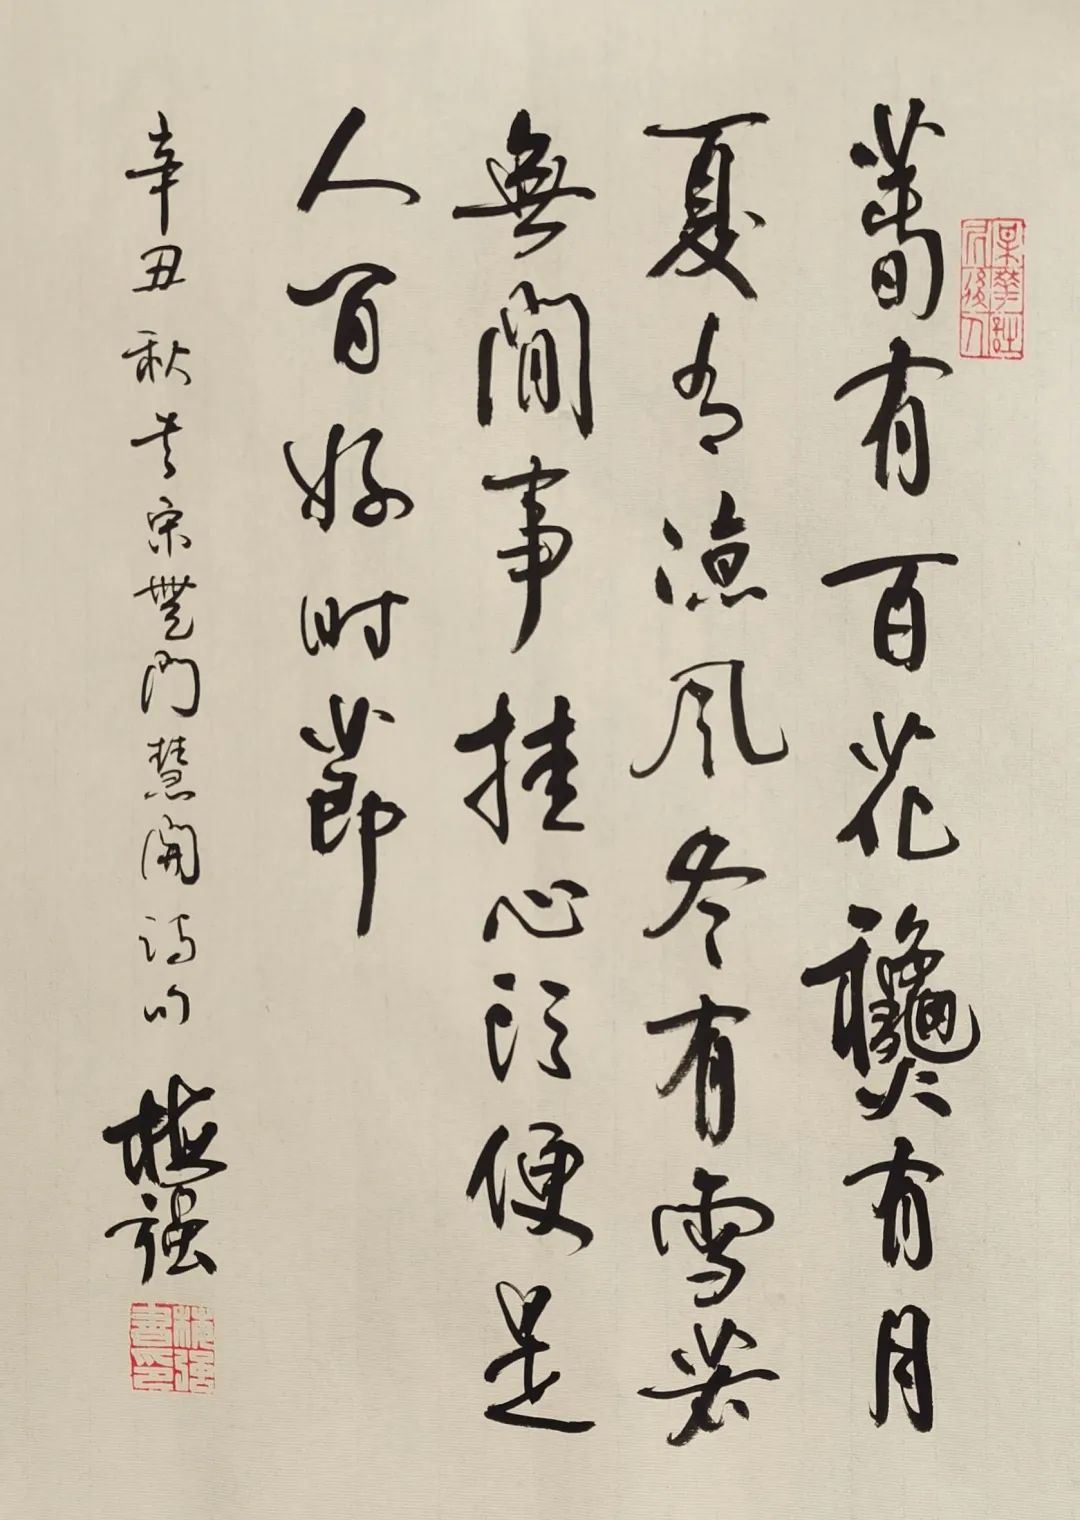 萅有百花𥤛有月
夏有涼風冬有雪若
無閒事挂心頭便是
人間好時節
辛丑秋書宋無門慧開詩句 植强